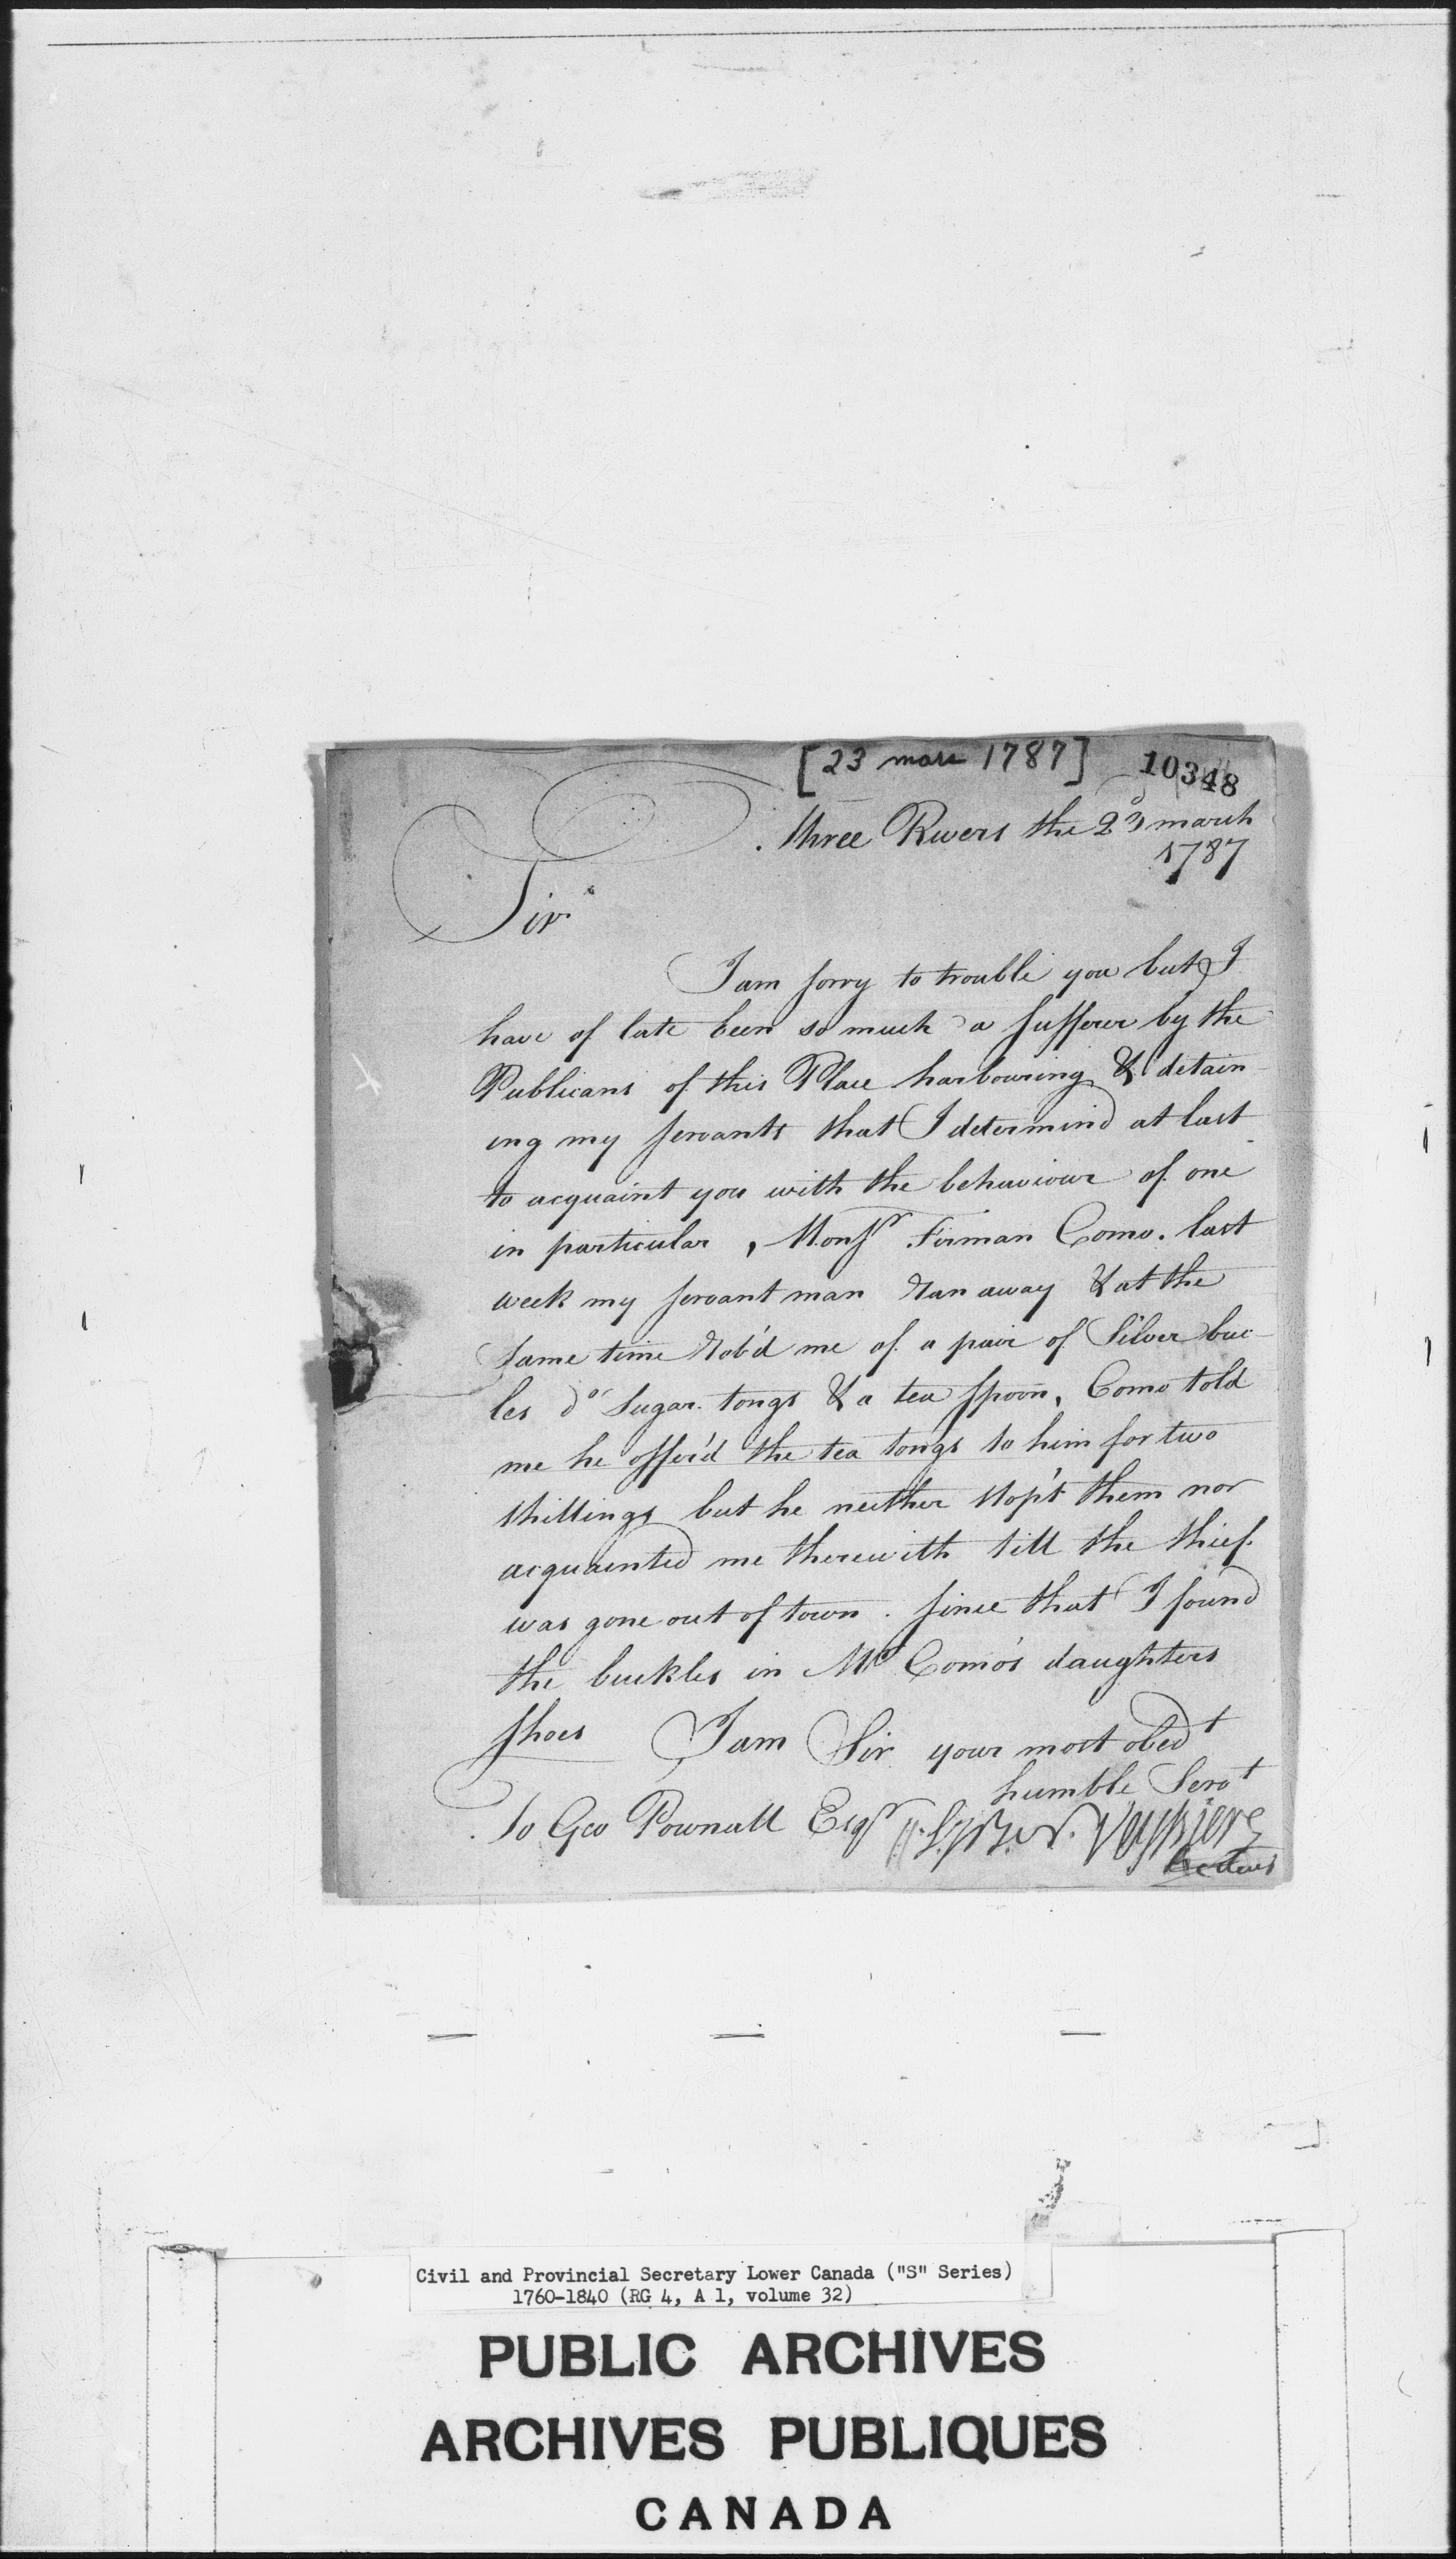 [23 mars 1787]
10348
three Rivers the 23 march
1787
Sir
I am sorry to trouble you but I
have of late been so much a sufferer by the
Publicans of this Place harbouring & detain-
ing my servants that I determind at last
to acquaint you with the behaviour of one
in particular, Monsr Firman Como. last
week my servant man Ran away & at the
same time Rob'd me of a pair of Silver buc-
les do Sugar tongs & a tea spoon, Como told
me he offer'd the tea tongs to him for two
shillings but he neither stop't them nor
acquainted me therewith till the thief
was gone out of town. since that I found
the buckles in Mr Como's daughters
shoes I am Sir your most obedt
humble Servt
To Geo Pownall Esqr Veyssiere
Civil and Provincial Secretary Lower Canada ("S" Series)
1760-1840 (RG 4, A 1, volume 32)
PUBLIC ARCHIVES
ARCHIVES PUBLIQUES
CANADA